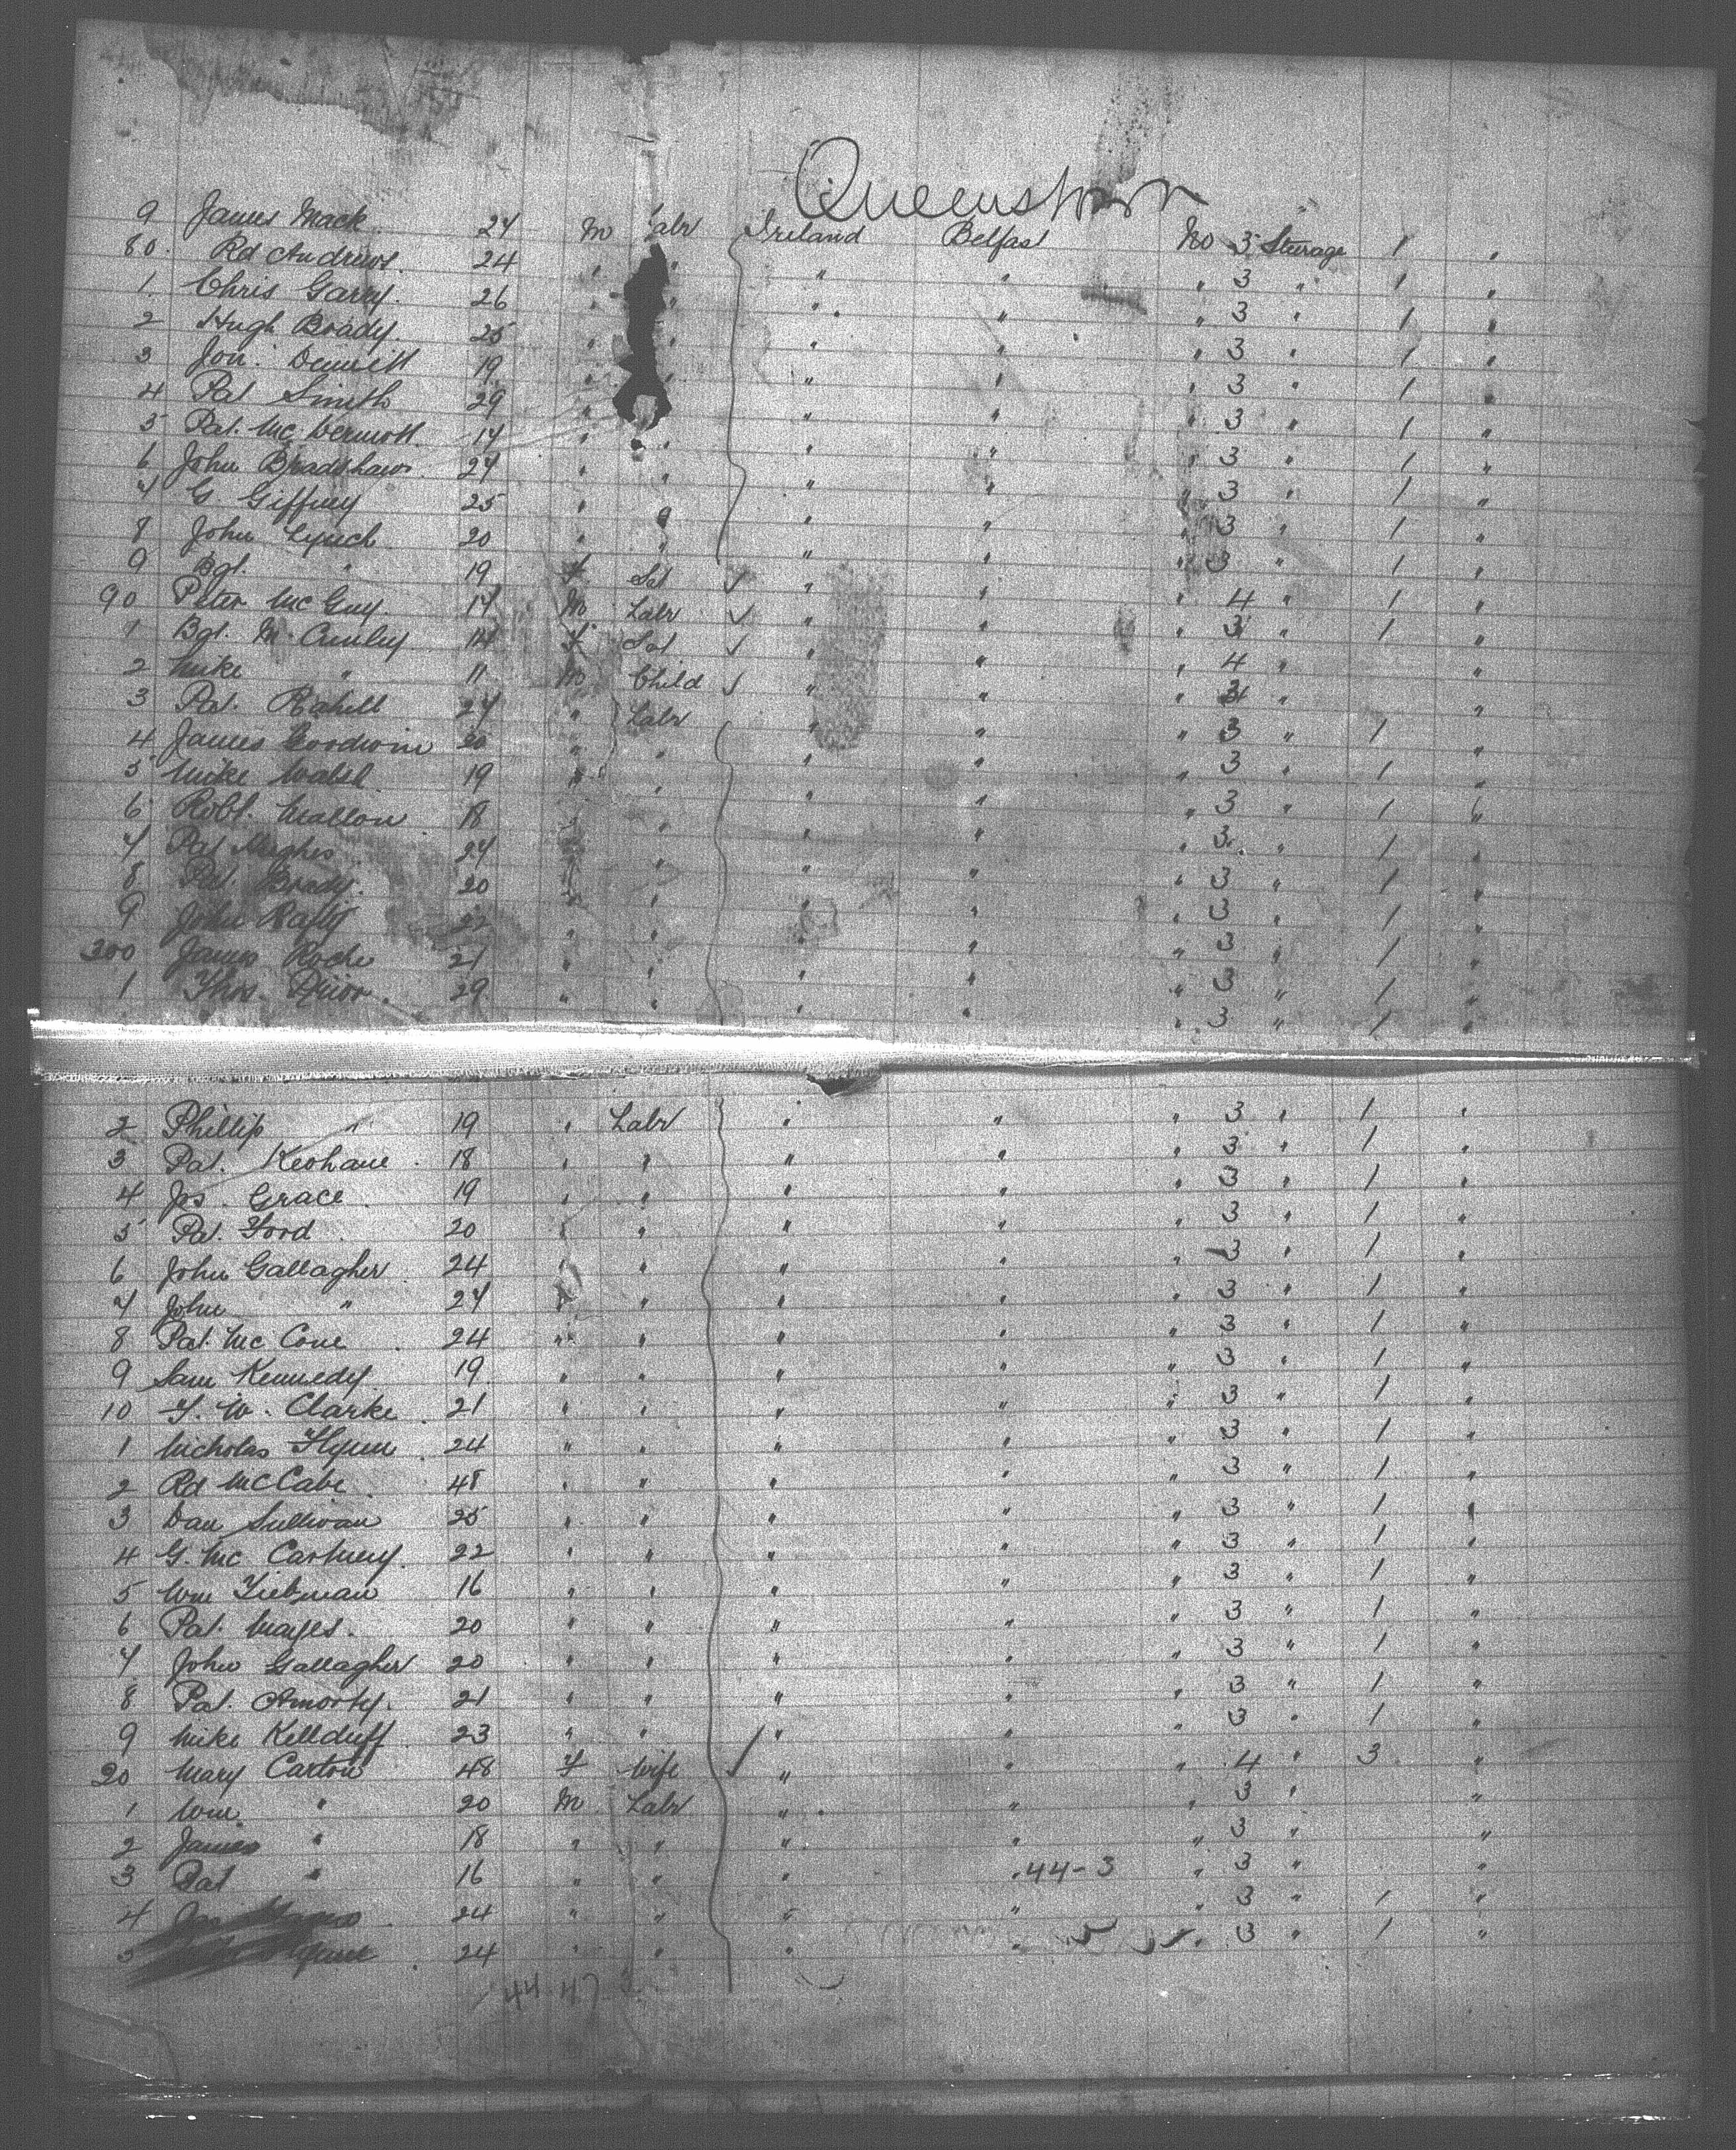 Queenstown
9 James Mack 27 M Labr Ireland Belfast No 3 Steerage 1 "
80 Rd Andrews 24 " " " " " 3 " 1 "
1 Chris Garry 26 " " " " " 3 " 1 "
2 Hugh Brady 25 " " " " 3 " 1 "
3 Jon. 19 " " " " " 3 " 1 "
4 Pat Smith 29 " " " " 3 " 1 "
5 Pat. McDermott 17 " " " " " 3 " 1 "
6 John Bradshaw 27 " " " " " 3 " 1 "
7 G. Giffney 25 " " " " " 3 " 1 "
8 John Lynch 20 " " " " " 3 " 1 "
9 Bgt. " 19 F " " " 4 " 1 "
90 Peter 17 M Labr " " " 3 " 1 "
1 Bgt. F " " " 4 " "
2 Mike " 11 M Child " " " "
3 Pat. Rahill 27 " Labr " " " 3 " 1 "
4 James Goodwin 20 " " " " " 3 " 1 "
5 Mike Walsh 19 " " " " " 3 " 1 "
6 Robt. Mallon 18 " " " " 3 " 1 "
7 Pat Hughes 27 " " " " 3 " 1 "
8 Pat. Brady 20 " " " " 3 " 1 "
9 John 22 " " " " 3 " 1 "
300 James Roche 21 " " " " " 3 " 1 "
1 Thos. Prior 29 " " " " " 3 " 1 "
2 Phillip " 19 " Labr " " " 3 " 1 "
3 Pat. Keohane 18 " " " " " 3 " 1 "
4 Jos. Grace 19 " " " " " 3 " 1 "
5 Pat. Ford 20 " " " " " 3 " 1 "
6 John Gallagher 24 " " " " 3 " 1 "
7 John " 27 " " " " " 3 " 1 "
8 Pat. McCone 24 " " " " " 3 " 1 "
9 Sam Kennedy 19 " " " " " 3 " 1 "
10 T. W. Clarke 21 " " " " " 3 " 1 "
1 Nicholas Flynn 24 " " " " " 3 " 1 "
2 Rd McCabe 48 " " " " " 3 " 1 "
3 Dan Sullivan 25 " " " " " 3 " 1 "
4 G. McCartney 22 " " " " " 3 " 1 "
5 Wm 16 " " " " " 3 " 1 "
6 Pat. Mayes 20 " " " " " 3 " 1 "
7 John Gallagher 20 " " " " " 3 " 1 "
8 Pat. 21 " " " " " 3 " 1 "
9 Mike Kellduff 23 " " " " " 3 " 1 "
20 Mary Carton 48 F Wife " " " 4 " 3 "
1 Wm. " 20 M Labr " " " 3 " "
2 James " 18 " " " " " 3 " "
3 Pat " 16 " " " " 44-3 " 3 " "
4 24 " " " " " 3 " 1 "
5 24 " " " " " 3 " 1 "
44 47